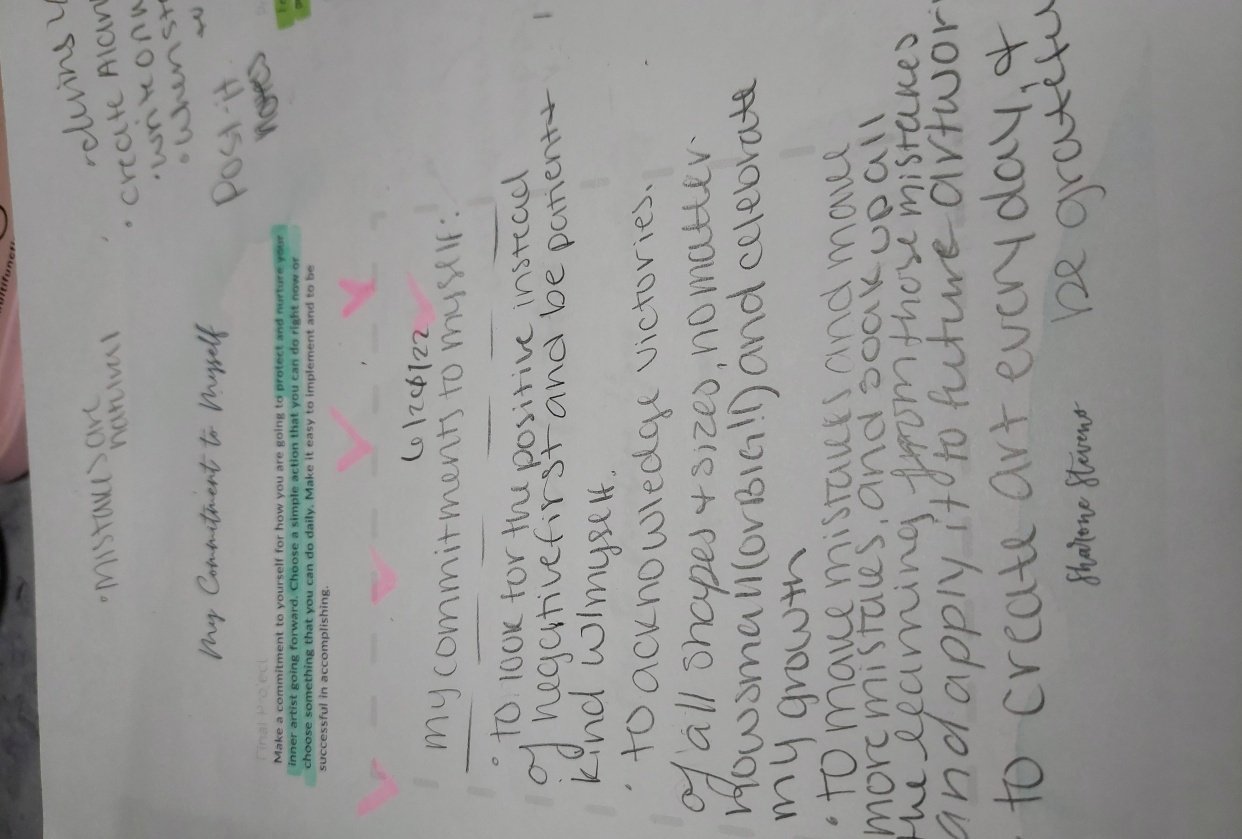 • MISTAKES ARE
natural
• during
• create
• write on
• when
Post-it
notes
Final Project
My Commitment to Myself
Make a commitment to yourself for how you are going to protect and nurture your
inner artist going forward. Choose a simple action that you can do right now or
choose something that you can do daily. Make it easy to implement and to be
successful in accomplishing.
6/28/22
my commitments to myself:
• to look for the positive instead
of negative first and be patient +
kind w/myself.
• to acknowledge victories.
of all shapes + sizes, no matter
how small (or BIG!!) and celebrate
my growth
• to make mistakes and make
more mistakes, and soak up all
the learning from those mistakes
and apply it to future artwork
to create art every day, +
be grateful
Sharone Stevens